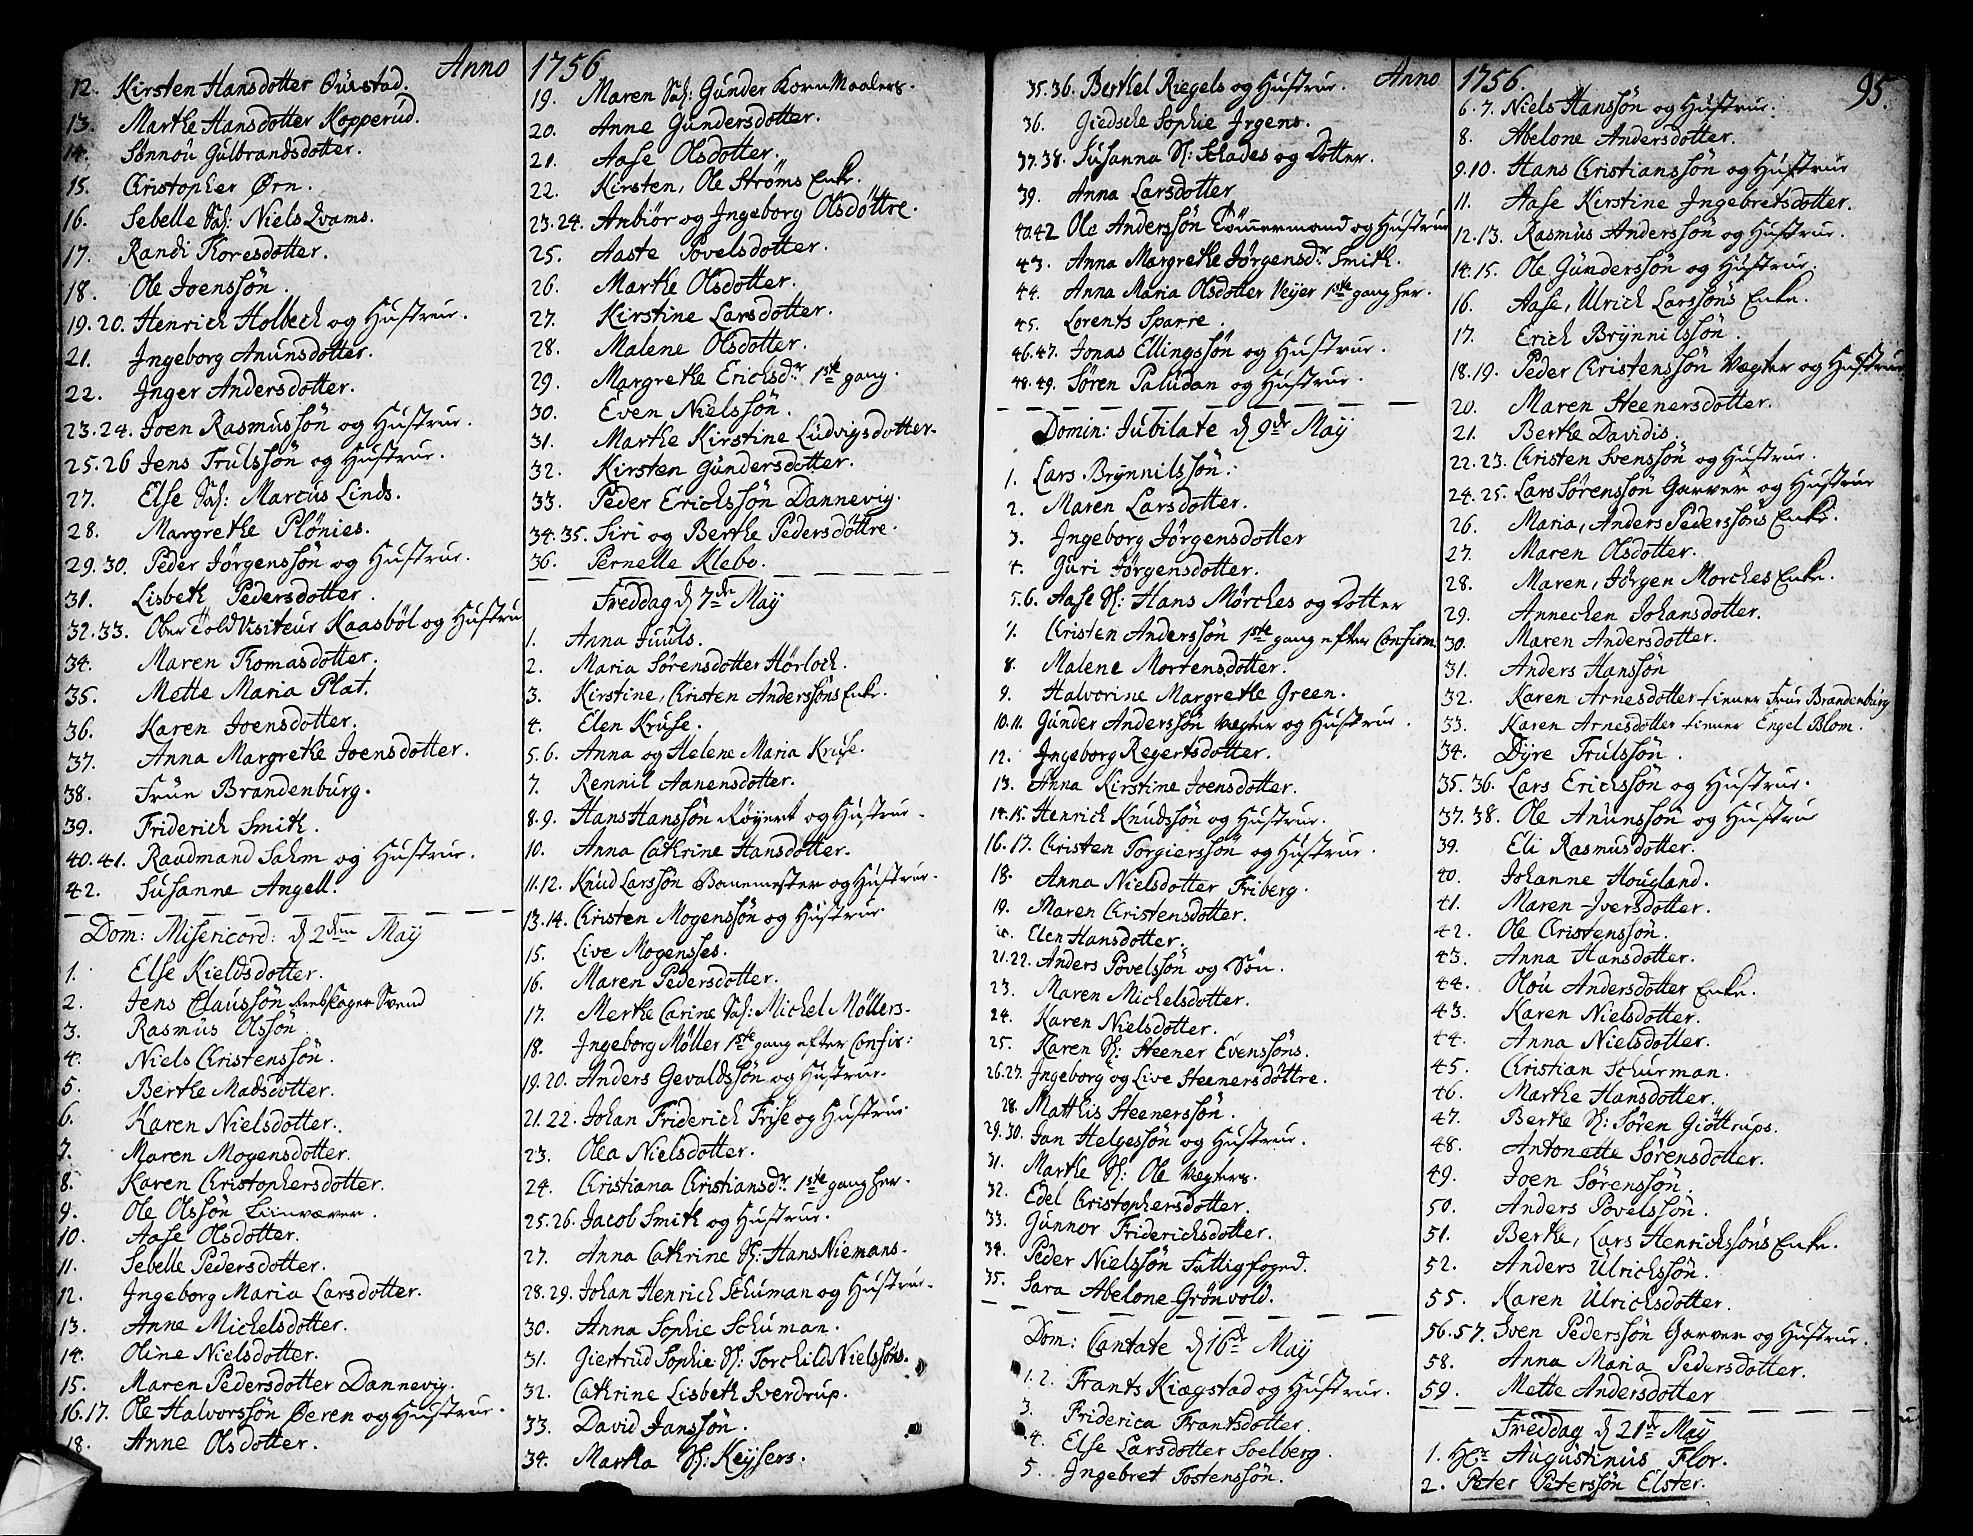 Anno 1756
12. Kirsten Hansdotter Øurstad.
13. Marthe Hansdotter Kopperud.
14. Sønnou Gulbrandsdotter.
15. Christopher Ørn.
16. Sebelle Sal: Niels Qvams.
17. Randi Thoresdotter.
18. Ole Joenssøn.
19. 20. Henrich Holbech og Hustrue.
21. Ingeborg Anunsdotter.
22. Inger Andersdotter.
23. 24. Joen Rasmussøn og Hustrue.
25. 26 Jens Trulssøn og Hustrue.
27. Else Sal: Marcus Linds.
28. Margrethe Plönies.
29. 30. Peder Jørgenssøn og Hustrue.
31. Lisbeth Pedersdotter.
32. 33. Ober Told Visiteur Kaasböl og Hustru
34. Maren Thomasdotter.
35. Mette Maria Plat.
36. Karen Joensdotter.
37. Anna Margrethe Joensdotter.
38. Frue Brandenburg.
39. Friderich Smith.
40. 41. Raadmand Sahm og Hustrue.
42. Susanne Angell.
Dom: Misericord: d 2den Maÿ
1. Else Kieldsdotter.
2. Jens Claussøn Rebslager Svend
3. Rasmus Olssøn.
4. Niels Christenssøn.
5. Berthe Madsdotter.
6. Karen Nielsdotter.
7. Maren Mogensdotter.
8. Karen Christophersdotter.
9. Ole Olssøn Linvæver.
10. Aase Olsdotter.
11. Sebelle Pedersdotter.
12. Ingeborg Maria Larsdotter.
13. Anne Michelsdotter.
14. Oline Nielsdotter.
15. Maren Pedersdotter Dannevig.
16. 17. Ole Halvorssøn Øeren og Hustrue.
18. Anne Olsdotter.
19. Maren Sal: Gunder Korn Maalers.
20. Anne Gundersdotter.
21. Aase Olsdotter.
22. Kirsten, Ole Strøms Enke.
23. 24. Anbiør og Ingeborg Olsdøttre.
25. Aaste Povelsdotter.
26. Marthe Olsdotter.
27. Kirstine Larsdotter.
28. Malene Olsdotter.
29. Margrethe Erichsdr 1ste gang.
30. Even Nielssøn.
31. Marthe Kirstine Ludvigsdotter.
32. Kirsten Gundersdotter.
33. Peder Erichssøn Dannevig.
34. 35. Siri og Berthe Pedersdøttre.
36. Pernelle Klebo.
Freddag d 7de Maÿ
1. Anna Juuls.
2. Maria Sørensdotter Hörloch.
3. Kirstine, Christen Anderssøns Enke.
4. Elen Kruse.
5. 6. Anna og Helene Maria Kruse.
7. Rennil Aanensdotter.
8. 9. Hans Hanssøn Röyert og Hustrue.
10. Anna Cathrine Hansdotter.
11. 12. Knud Larssøn Bommester og Hustrue.
13. 14. Christen Mogenssøn og Hustrue.
15. Live Mogenses.
16. Maren Pedersdotter.
17. Merthe Carine Sal: Michel Møllers.
18. Ingeborg Møller 1ste gang efter Confir:
19. 20. Anders Gevaldssøn og Hustrue.
21. 22. Johan Friderich Frise og Hustrue.
23. Olea Nielsdotter.
24. Christiana Christiansdr 1ste gang her.
25. 26. Jacob Smith og Hustrue.
27. Anna Cathrine Sl: Hans Niemans.
28. 29. Johan Henrich Schuman og Hustrue.
30. Anna Sophie Schuman.
31. Giertrud Sophie Sl: Torchild Nielssøns.
32. Cathrine Lisbeth Sverdrup.
33. David Janssøn.
34. Martha Sl: Keysers.
Anno 1756. 95.
35. 36. Berthel Riegels og Hustrue.
36. Giedsche Sophie Irgens.
37. 38. Susanna Sl: Schades og Dotter.
39. Anna Larsdotter
40. 42 Ole Anderssøn Tömmermand og Hustrue
43. Anna Margrethe Jørgensdr Smith.
44. Anna Maria Olsdotter Veÿer 1ste gang her.
45. Lorents Sparre.
46. 47. Jonas Ellingssøn og Hustrue.
48. 49. Søren Paludan og Hustrue.
Domin: Jubilate d 9de Maÿ
1. Lars Brÿnnilssøn.
2. Maren Larsdotter.
3. Ingeborg Jørgensdotter
4. Guri Jørgensdotter.
5. 6. Aase Sl: Hans Mørches og Dotter
7. Christen Anderssøn 1ste gang efter Confirm
8. Malene Mortensdotter.
9. Halvorine Margrethe Green.
10. 11. Gunder Anderssøn Vægter og Hustrue.
12. Ingeborg Regertsdotter.
13. Anna Kirstine Joensdotter.
14. 15. Henrich Knudssøn og Hustrue.
16. 17. Christen Torgierssøn og Hustrue.
18. Anna Nielsdotter Friberg.
19. Maren Christensdotter.
20. Elen Hansdotter.
21. 22. Anders Povelssøn og Søn.
23. Maren Michelsdotter.
24. Karen Nielsdotter.
25. Karen Sl: Steener Evenssøns.
26. 27. Ingeborg og Live Steenersdøttre.
28. Matthis Steenerssøn.
29. 30. Jan Helgessøn og Hustrue.
31. Marthe Sl: Ole Vægters.
32. Edel Christophersdotter.
33. Gunnor Friderichsdotter.
34. Peder Nielssøn Fattigfoged.
35. Sara Abelone Grönvold.
Dom: Cantate d 16de Maÿ
1. 2. Frants Kiægstad og Hustrue.
3. Friderica Frantsdotter.
4. Else Larsdotter Soelberg.
5. Ingebret Tostenssøn.
6. 7. Niels Hanssøn og Hustrue.
8. Abelone Andersdotter.
9. 10. Hans Christianssøn og Hustrue
11. Aase Kirstine Ingebretsdotter.
12. 13. Rasmus Anderssøn og Hustrue.
14. 15. Ole Gunderssøn og Hustrue.
16. Aase, Ulrich Larssøns Enke.
17. Erich Brÿnnilssøn.
18. 19. Peder Christenssøn Vægter og Hustrue
20. Maren Steenersdotter.
21. Berthe Davidis
22. 23. Christen Svenssøn og Hustrue.
24. 25. Lars Sørenssøn Garver og Hustrue
26. Maria, Anders Pederssøns Enke.
27. Maren Olsdotter.
28. Maren, Jørgen Morches Enke.
29. Annechen Johansdotter.
30. Maren Andersdotter.
31. Anders Hanssøn
32. Karen Arnesdotter tienner Frue Brandenburg
33. Karen Arnesdotter tienner Engel Blom.
34. Dÿre Trulssøn.
35. 36. Lars Erichssøn og Hustrue.
37. 38. Ole Anunssøn og Hustrue
39. Eli Rasmusdotter.
40. Johanne Hougland.
41. Maren Iversdotter.
42. Ole Christenssøn.
43. Anna Hansdotter.
44. Olou Andersdotter Enke.
43. Karen Nielsdotter.
44. Anna Nielsdotter.
45. Christian Schurman.
46. Marthe Hansdotter.
47. Berthe Sl: Søren Giöttrups.
48. Antonette Sørensdotter.
49. Joen Sørenssøn.
50. Anders Povelssøn.
51. Berthe, Lars Henrichssøns Enke.
52. Anders Ulrichssøn.
55. Karen Ulrichsdotter.
56. 57. Sven Pederssøn Garver og Hustrue.
58. Anna Maria Pedersdotter.
59. Mette Andersdotter
Freddag d 21de Maÿ
1. Hr Augustinus Flor.
2. Peter Peterssøn Elster.